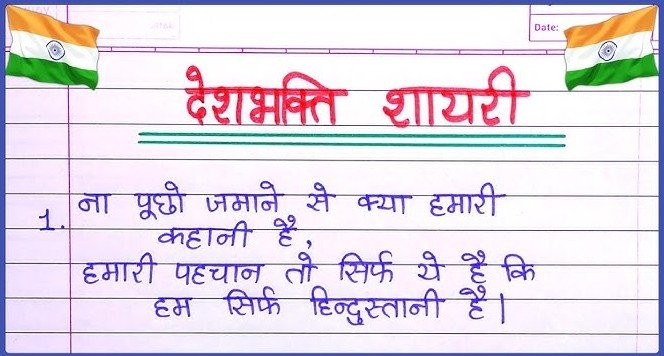 Date:
देशभक्ति शायरी
1. ना पूछो जमाने से क्या हमारी
कहानी है,
हमारी पहचान तो सिर्फ ये है कि
हम सिर्फ हिन्दुस्तानी है।